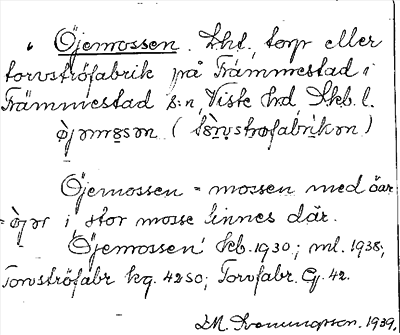 Öjemossen. Lht, torp eller
torvströfabrik på Främmestad i
Främmestad s:n, Viste hd, Skb. l.
òjəmωsən. (
Öjemossen = mossen med öar
= òjər i, stor mosse finnes där.
Öjemossen kb. 1930; ml. 1938;
Torvströfabr kg. 4250; Torvfabr. Gj. 42.
1939.